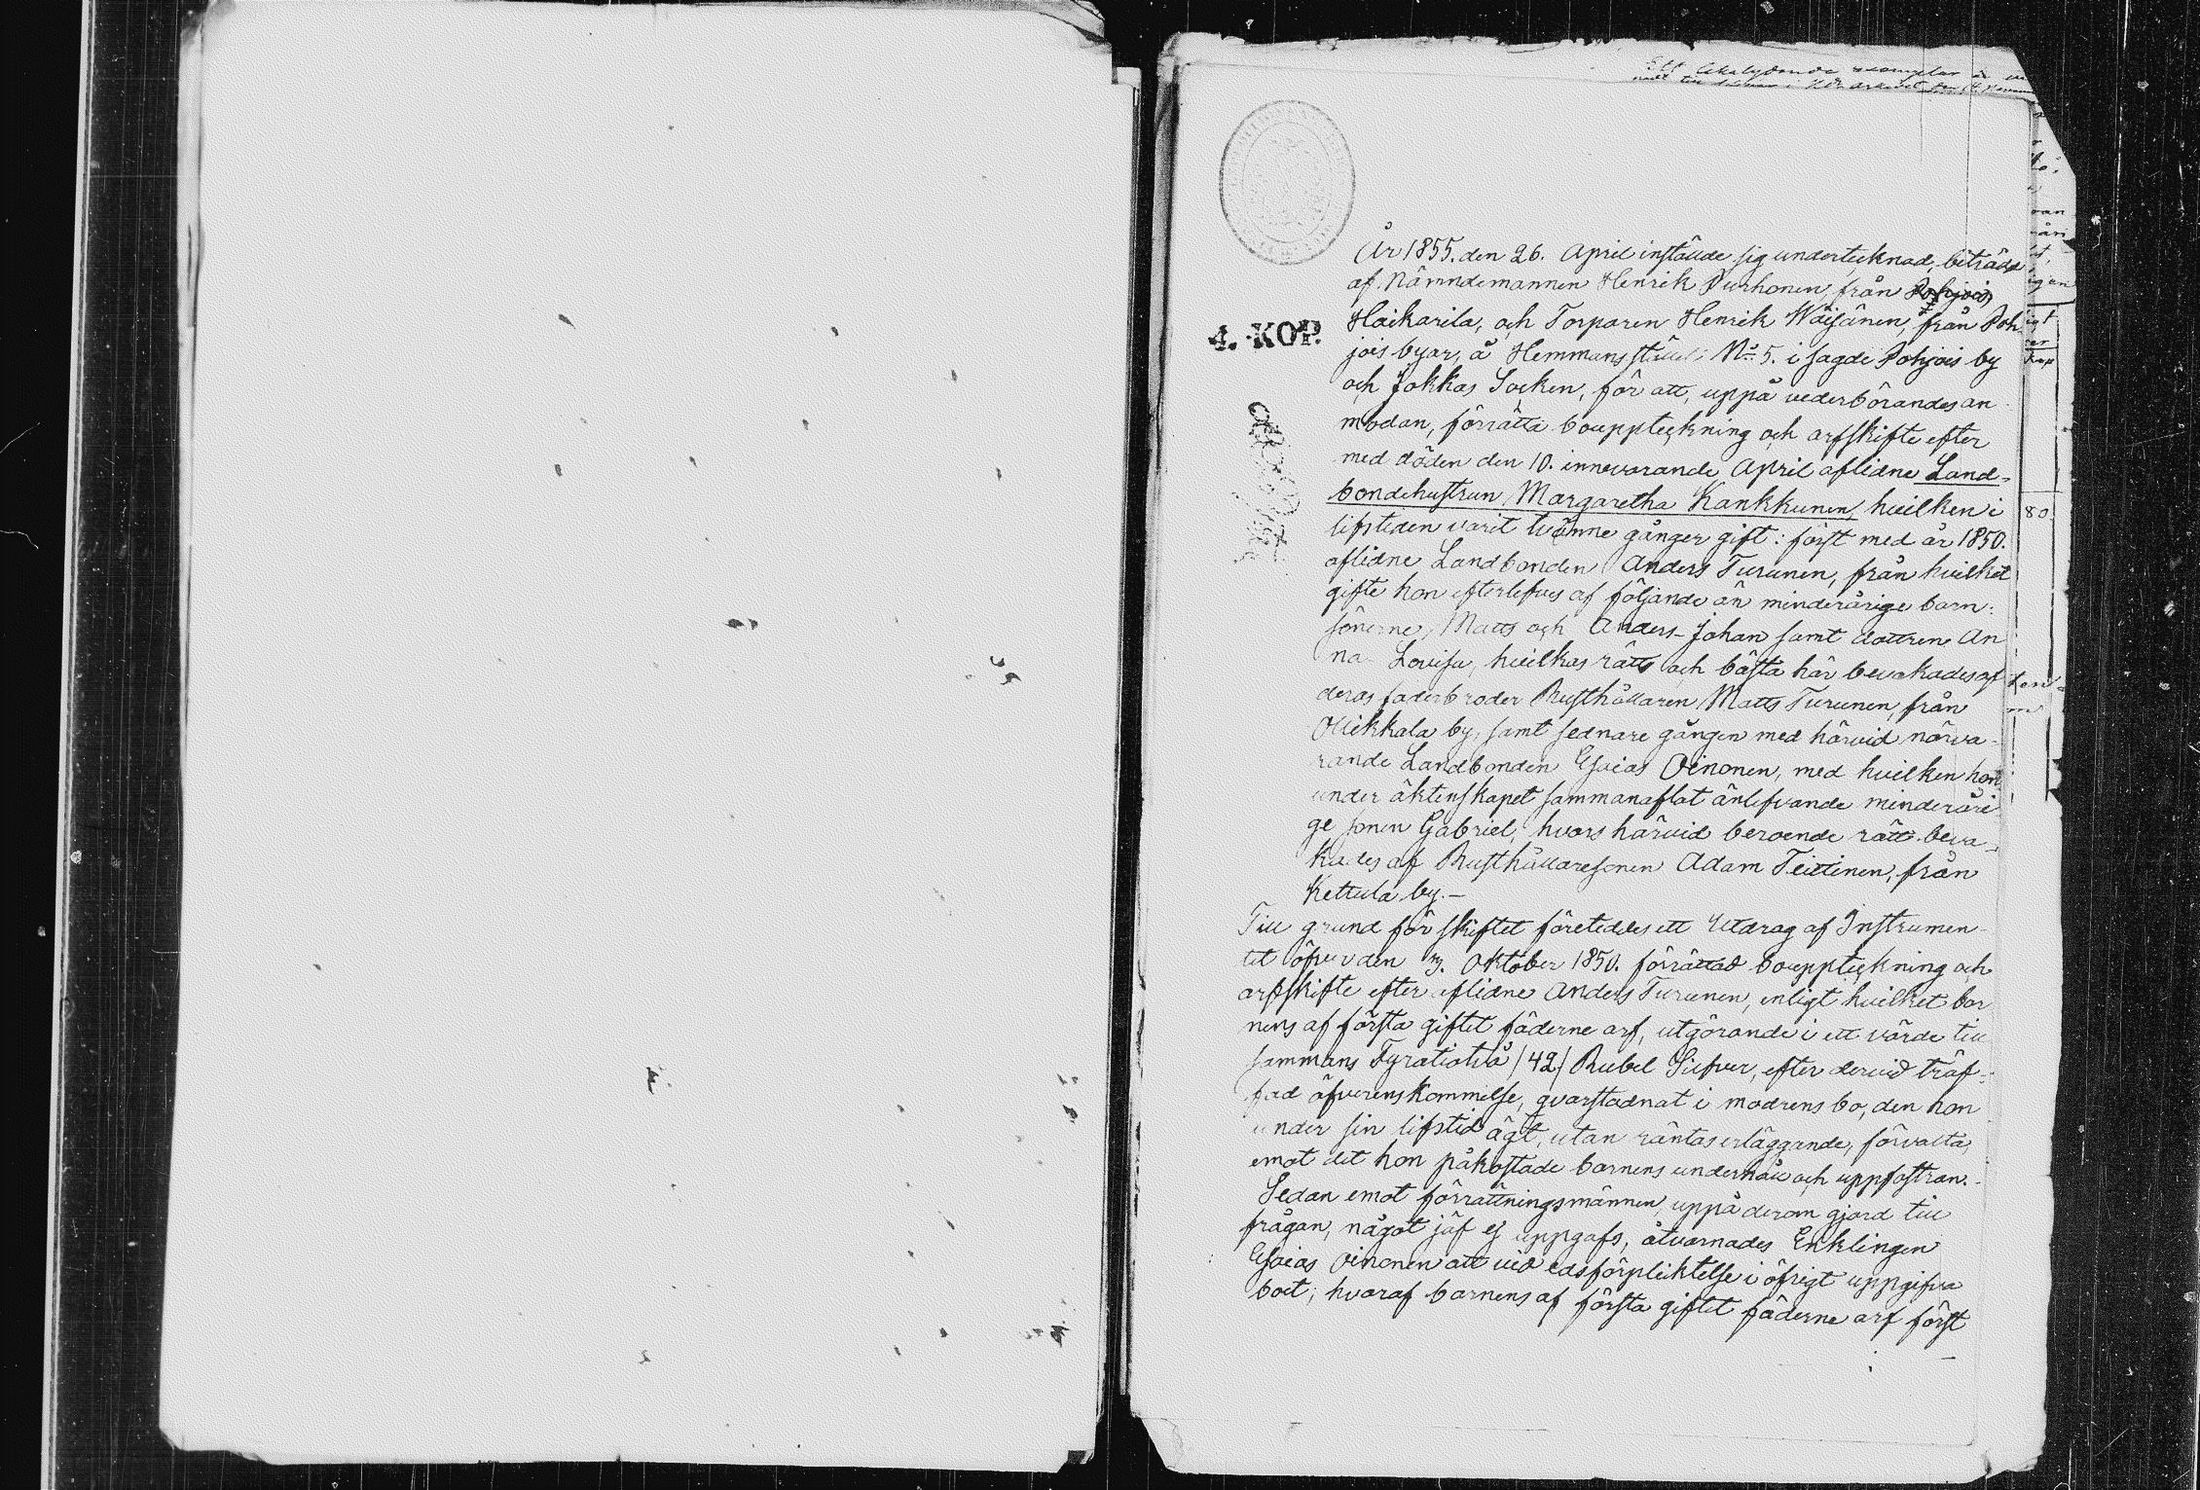 Ett likalydande exemplar är
År 1855. den 26. April instälde sig undertecknad, biträdd
af Nämndemannen Henrik Purhonen från Pohjois
4. KOP.
Haikarila, och Torparen Henrik Wäisänen, från Poh
jois byar, å Hemmansstället No 5. i sagde Pohjois by
och Jokkas Socken, för att, uppå vederbörandes an
modan, förrätta bouppteckning och arfskifte efter
med döden den 10. innevarande April aflidne Land-
bondehustrun Margaretha Kankkunen, hvilken i
lifstiden varit tvänne gånger gift: först med år 1850.
aflidne Landbonden Anders Turunen, från hvilket
gifte hon efterlefves af följande än minderårige barn:
sönerne, Matts och Anders-Johan samt dottren An
na Lovisa, hvilkas rätt och bästa här bevakades af
deras faderbroder Rusthållaren Matts Turunen, från
Ollikkala by, samt sednare gången med härvid närva-
rande Landbonden Esaias Oinonen, med hvilken hon
under äktenskapet sammanaflat änlefvande minderåri
ge sonen Gabriel, hvars härvid beroende rätt beva-
kades af Rusthållaresonen Adam Teittinen, från
Kettula by.-
Till grund för skiftet företeddes ett Utdrag af Instrumen-
tet öfver den 3. Oktober 1850. förrättad bouppteckning och
arfskifte efter aflidne Anders Turunen, enligt hvilket bar
nens af första giftet fäderne arf, utgörande i ett värde till
sammans Fyratiotvå /42/ Rubel Silfver, efter dervid träf-
fad öfverenskommelse, qvarstadnat i modrens bo, den hon
under sin lifstid ägt, utan räntas erläggande, förvalta,
emot det hon påkostade barnens underhåll och uppfostran.-
Sedan emot förrättningsmännen, uppå derom gjord till
frågan, något jäf ej uppgafs, åtvarnades Enklingen
Esaias Oinonen att vid edsförpliktelse i öfrigt uppgifva
boet; hvaraf barnens af första giftet fäderne arf först
80